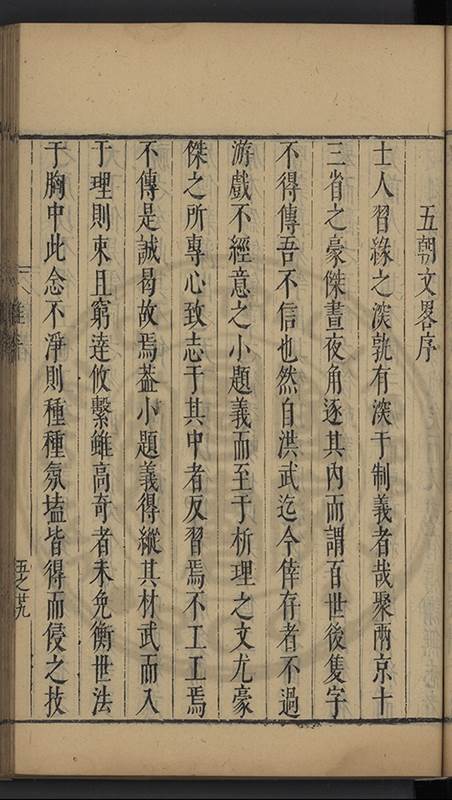 五朝文畧序
士人習緣之深孰有深于制義者哉聚兩京十
三省之豪傑晝夜角逐其內而謂百世後隻字
不得傳吾不信也然自洪武迄今倖存者不過
游戲不經意之小題義而至于析理之文尤豪
傑之所專心致志于其中者反習焉不工工焉
不傳是誠曷故焉葢小題義得縱其材武而入
于理則束且窮達攸繫雖高奇者未免衡世法
于胸中此念不淨則種種氛𡏖皆得而侵之技